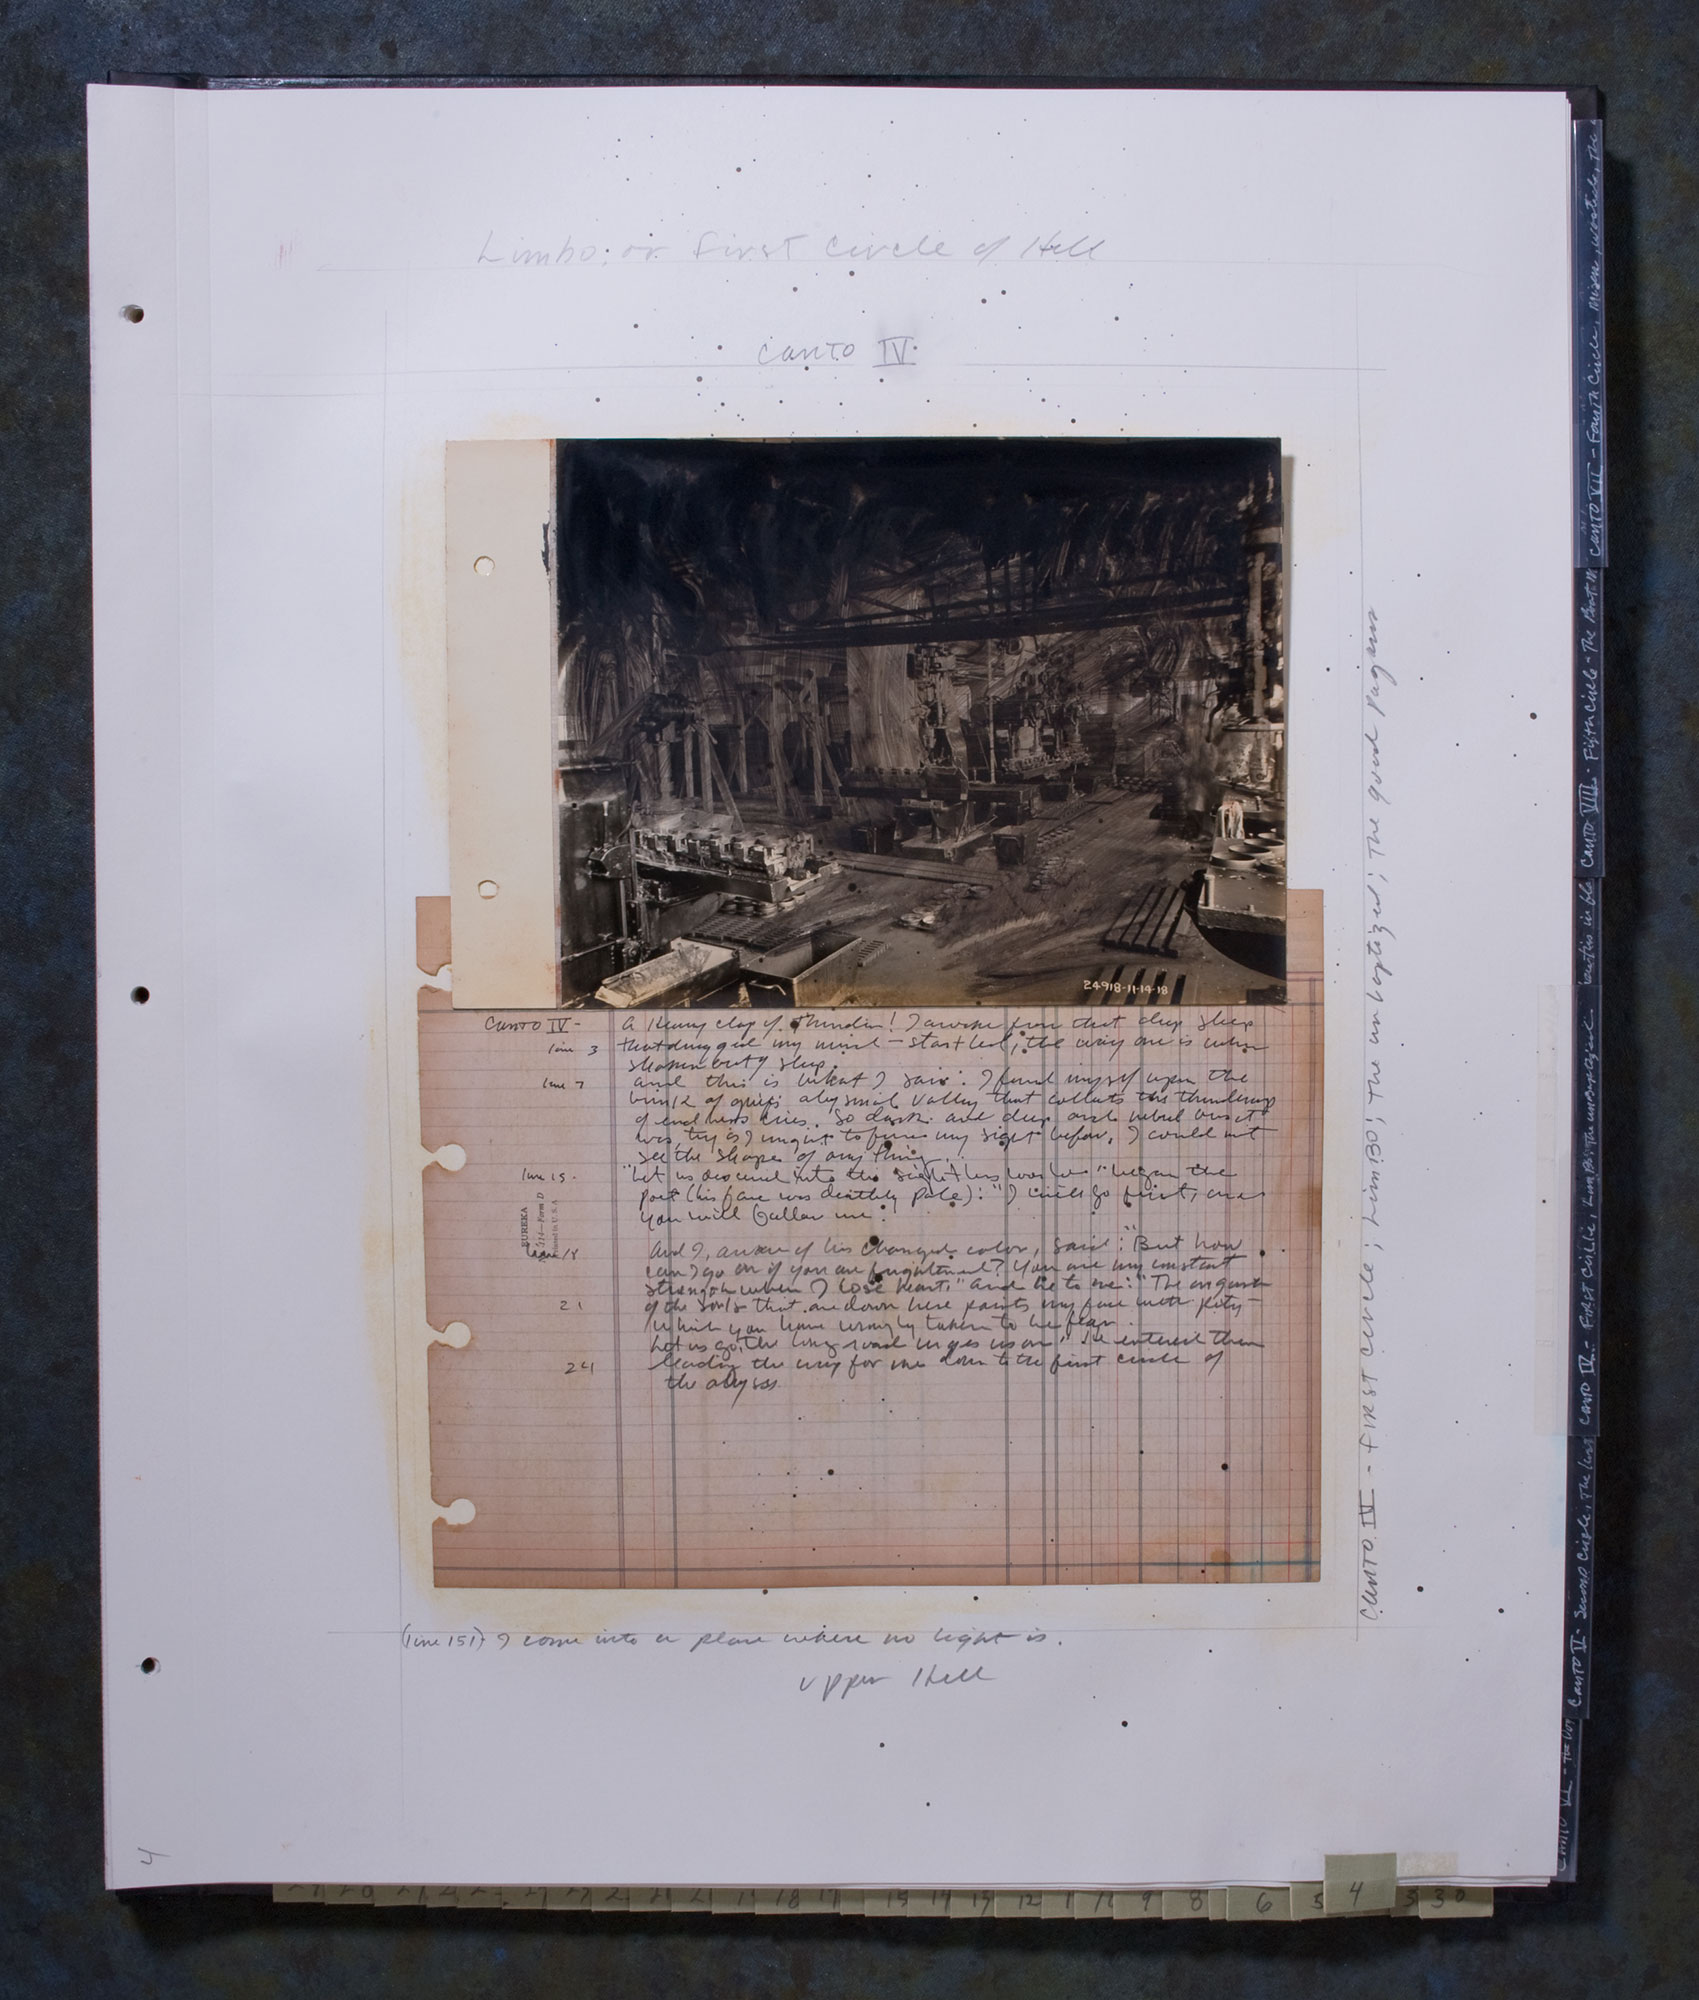 Limbo: or First Circle of Hell
Canto IV
24918-11-14-18
Canto IV - A heavy clap of thunder! I awoke from that deep sleep
line 3 that drugged my mind - startled, the way one is when
shaken out of sleep.
line 7 and this is what I saw: I found myself upon the
brink of grief's abysmal valley that collects the thunderings
of endless cries. So dark and deep and nebulous it
was, try as I might to force my sight below, I could not
see the shape of any thing.
line 15. "Let us descend into the sightless world" began the
poet (his face was deathly pale): "I will go first, and
you will follow me."
EUREKA
Form D
U.S.A
line 18 And I, aware of his changed color, said: "But how
can I go on if you are frightened? You are my constant
strength when I lose heart." and he to me: "The anguish
21 of the souls that are down here paints my face with pity -
which you have wrongly taken to be fear.
Let us go, the long road urges us on." He entered then
24 leading the way for me down to the first circle of
the abyss.
(line 151) I come into a place where no light is.
Upper Hell
CANTO IV - FIRST CIRCLE; LIMBO; The unbaptized; The good pagans
CANTO VII - Fourth Circle, Misers, The
CANTO VIII - Fifth Circle - The
CANTO IV - FIRST Circle,
CANTO V - Second Circle, The lust
CANTO VI - The
4
18 17 15 12 9 8 6 5 4 3